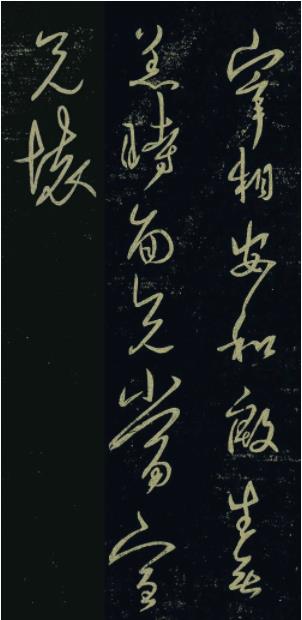 宰相安和殷生無
恙時面兄當宣
兄懷